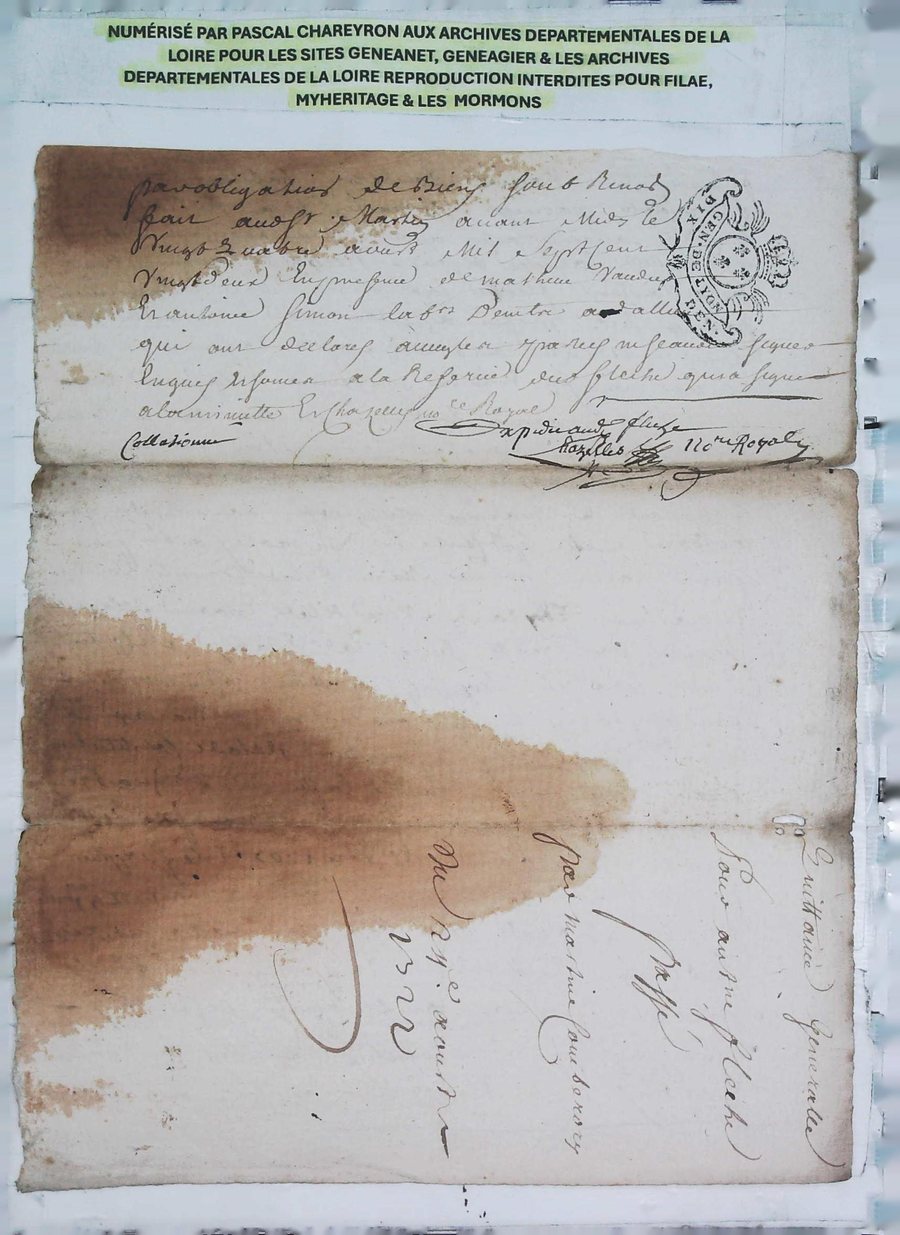 NUMÉRISÉ PAR PASCAL CHAREYRON AUX ARCHIVES DEPARTEMENTALES DE LA
LOIRE POUR LES SITES GENEANET, GENEAGIER & LES ARCHIVES
DEPARTEMENTALES DE LA LOIRE REPRODUCTION INTERDITES POUR FILAE,
MYHERITAGE & LES MORMONS
par obligation de Biens soub Renon
fait audt St Martin avant Midy le
Vingt quatre aoust Mil Sept Cent
Vingt deux En presence de mathieu
Et antoine Simon labrs
qui ont declaré
Enquis Et somés a la Reserve dud fleche qui a signé
a la minutte Et Chazelles nore Royal
GEN. DE LYON
DIX DEN.
Collationné
Expedié aud fleche
Chazelles Nore Royal
Quittance generalle
Pour antne fleche
Passé
Par martine Comberory
Du 24e aoust
1722